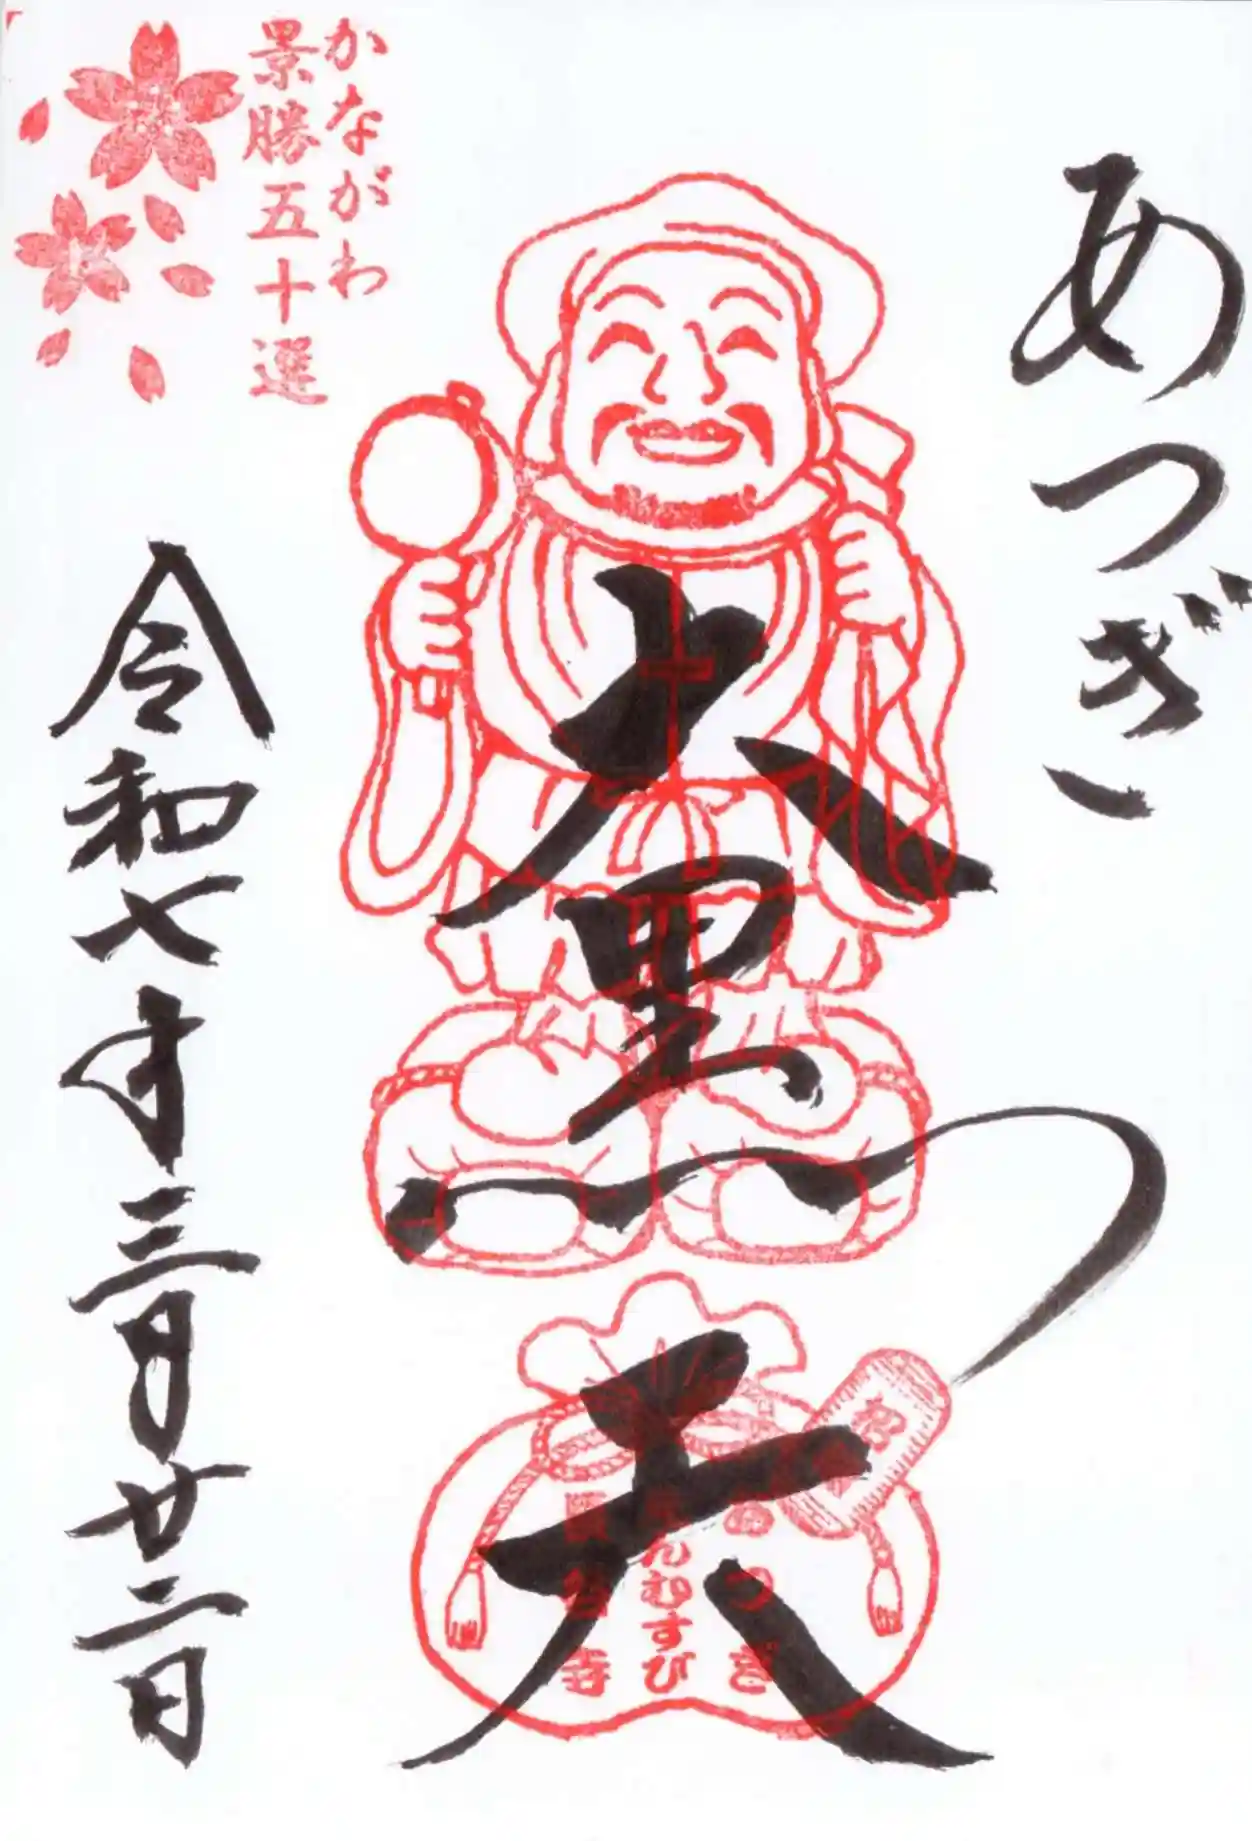 あつぎ
大黒天
あつぎ
えんむすび
かながわ
景勝五十選
令和七年三月廿二日